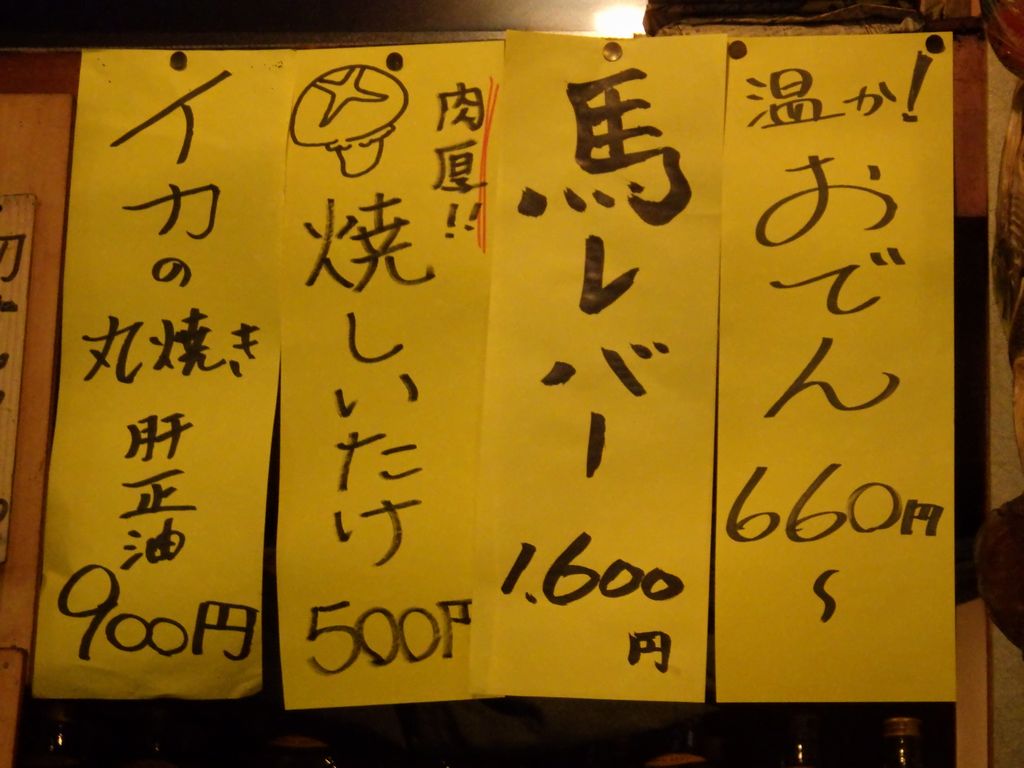 温か!
おでん
660円
〜
馬レバー
1.600
円
肉厚!!
焼しいたけ
500円
イカの
丸焼き
肝正油
900円